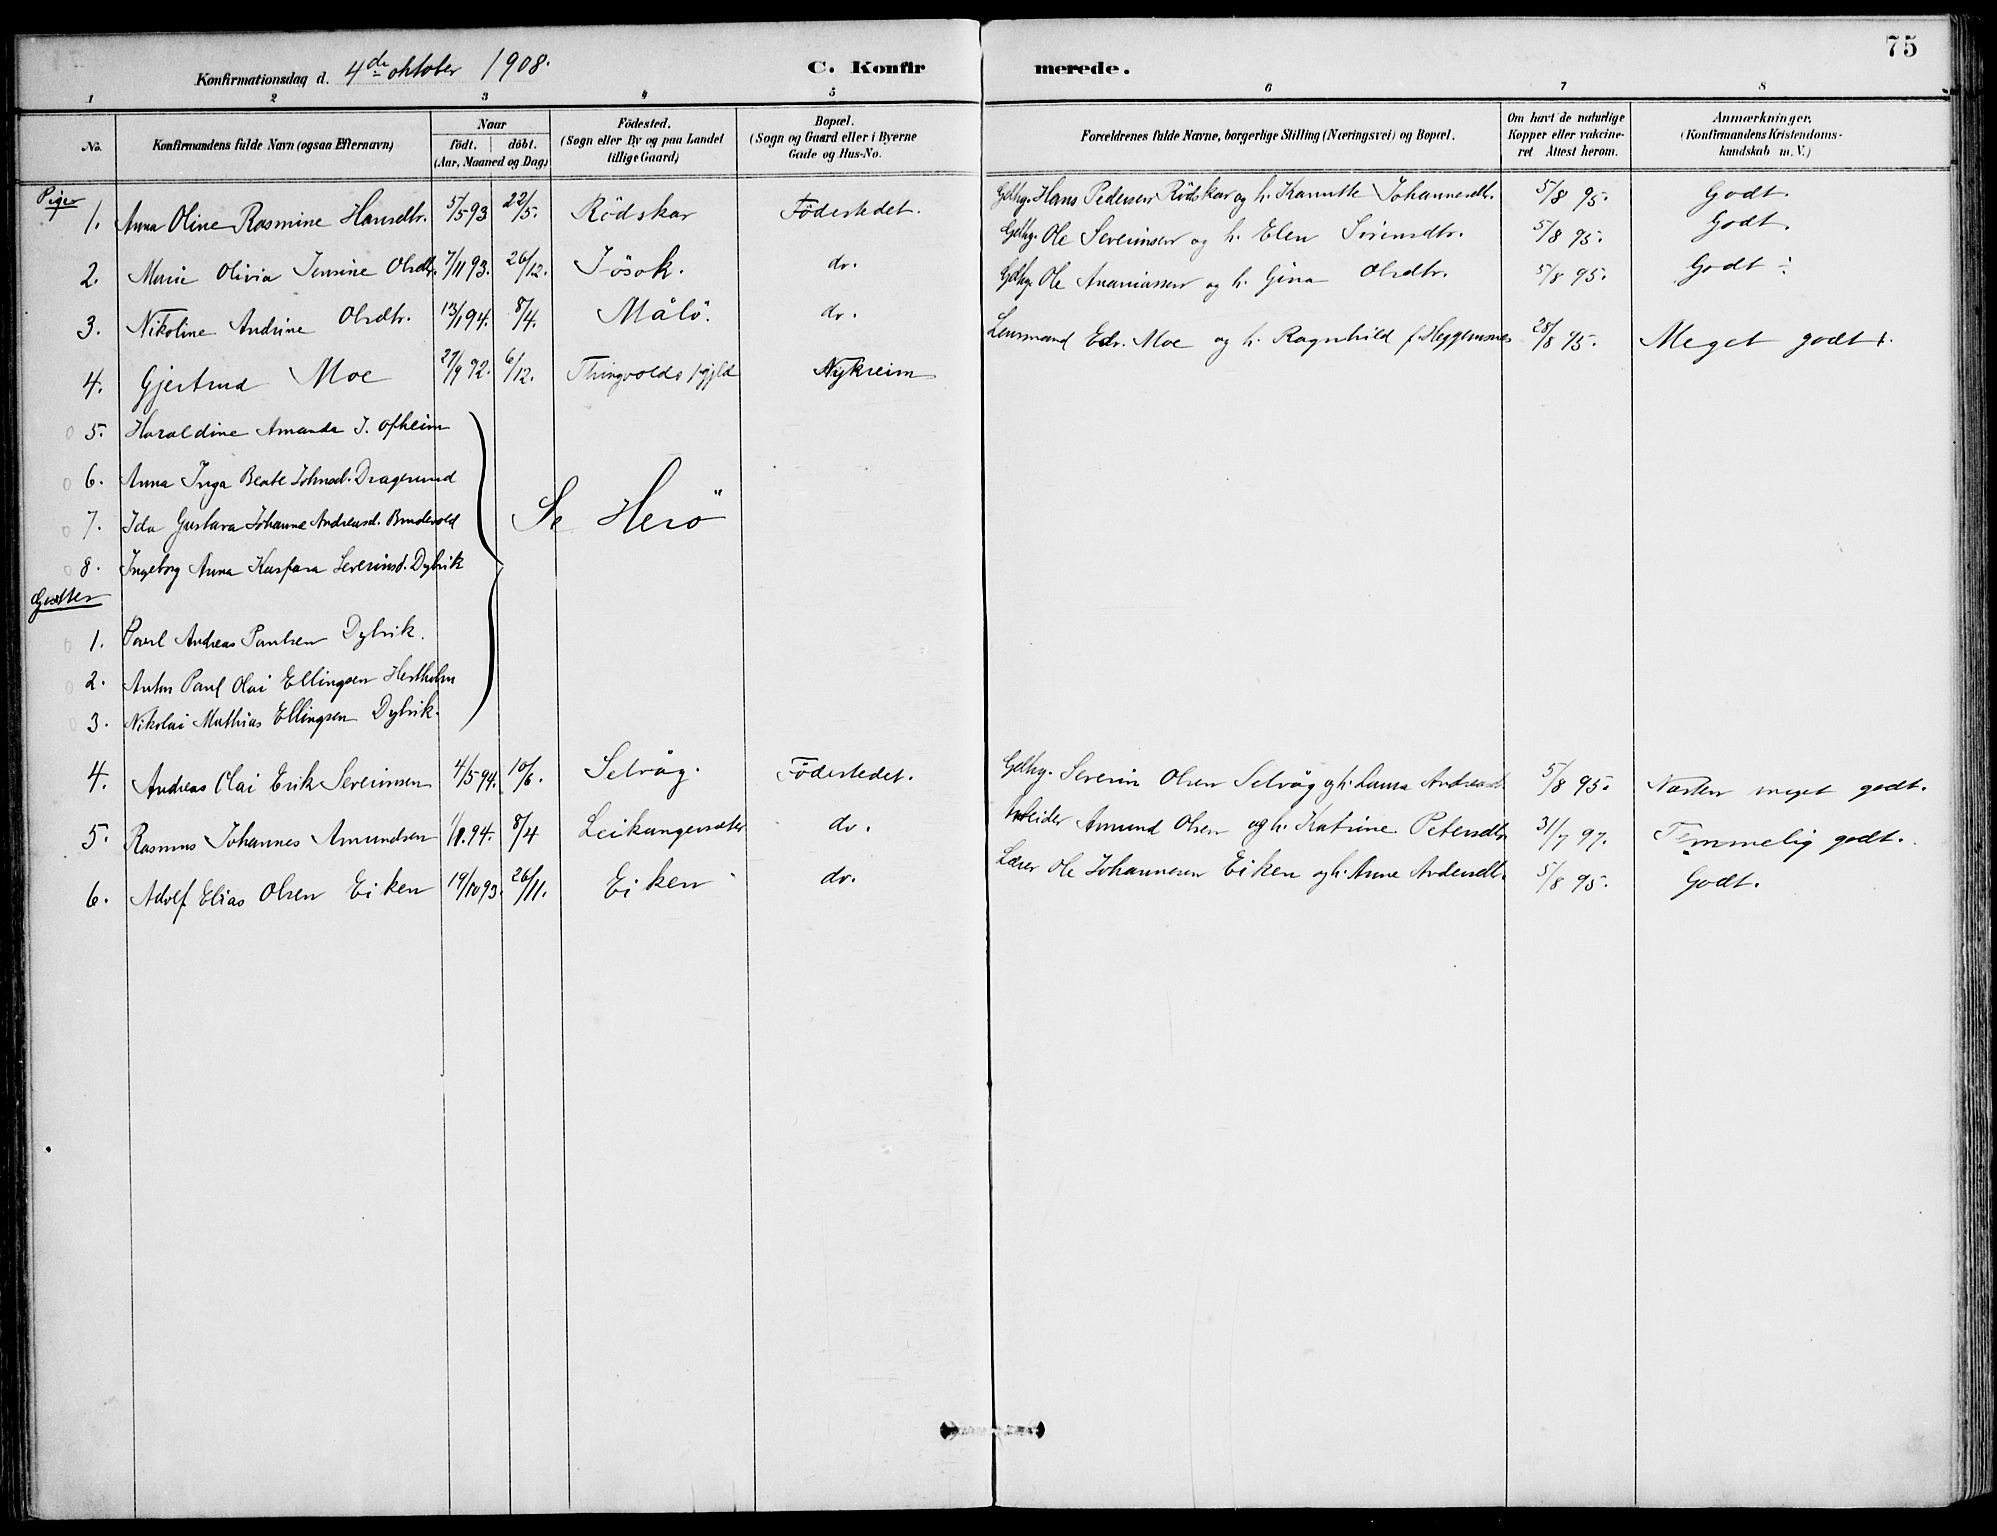 75
Konfirmationsdag d. 4de oktober 1908.
C. Konfirmerede.
1 2 3 4 5 6 7 8
No. Konfirmandens fulde Navn (ogsaa Efternavn) Naar födt. döbt. (Aar, Maaned og Dag) Födested. (Sogn eller By og paa Landet tillige Gaard) Bopæl. (Sogn og Gaard eller i Byerne Gade og Hus-No. Forældrenes fulde Navne, borgerlige Stilling (Næringsvei) og Bopæl. Om havt de naturlige Kopper eller vakcineret Attest herom. Anmærkninger, (Konfirmandens Kristendomskundskab m. V.)
Piger
1. Anna Oline Rasmine Hansdtr. 5/5 93 22/5. Rödskar Födestedet. Gdbg. Hans Pedersen Rödskar og h. Johannesdtr. 5/8 95. Godt.
2. Marie Olivia Jensine Olsdtr. 7/11 93. 26/12. Jösok. do. Gdbg. Ole Severinsen og h. Elen Sörensdtr. 5/8 95. Godt.
3. Nikoline Andrine Olsdtr. 13/1 94. 8/4. Målö. do. Gdbg. Ole Ananiassen og h. Gina Olsdtr. 5/8 95. Godt ÷
4. Gjertrud Moe 27/9 92. 6/12. Thingvolds pgjld Nykreim Lensmand Edv. Moe og h. Ragnhild f. Heggemsnes 28/8 95. Meget godt +.
5. Haraldine Amanda J. Opheim
6. Anna Inga Beate Johnsd. Dragesund
7. Ida Gustava Johanne Andreasd. Bondevold
Se Herö
8. Ingeborg Anna Kaspara Severinsd. Dybvik
Gutter
1. Povel Andreas Paulsen Dybvik.
2. Anton Paul Olai Ellingsen Hestholm
3. Nikolai Mathias Ellingsen Dybvik.
4. Andreas Olai Erik Severinsen 4/5 94. 10/6. Selvåg. Födestedet. Gdbg. Severin Olsen Selvåg og h. Laura Andreasd. 5/8 95. Næsten meget godt.
5. Rasmus Johannes Amundsen 94. 8/4 Leikangersæter do. Arbeider Amund Olsen og h. Katrine Petersdtr. 31/7 97. Temmelig godt.
6. Adolf Elias Olsen Eiken 14/10 93. 26/11. Eiken do. Lærer Ole Johannesen Eiken og h. Anne 5/8 95. Godt.